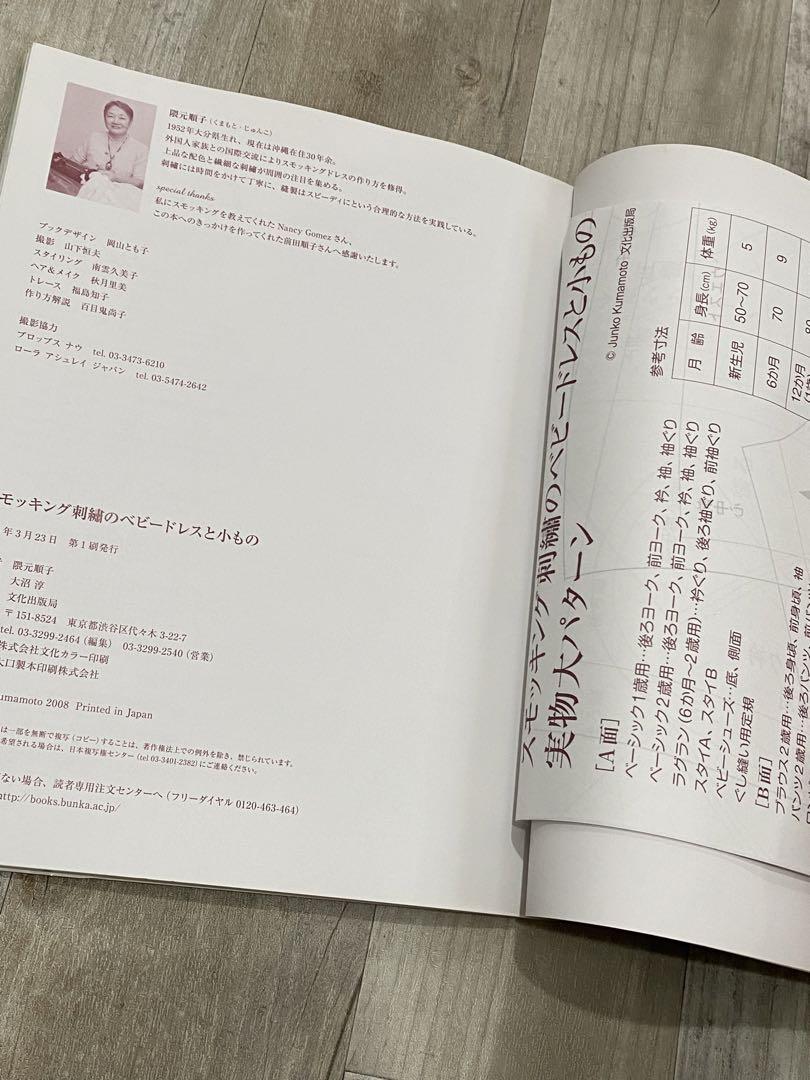 隈元順子（くまもと・じゅんこ）
1952年大分県生れ、現在は沖縄在住30年余。
外国人家族との国際交流によりスモッキングドレスの作り方を修得。
上品な配色と繊細な刺繡が周囲の注目を集める。
刺繡には時間をかけて丁寧に、縫製はスピーディにという合理的な方法を実践している。
special thanks
私にスモッキングを教えてくれた Nancy Gomez さん、
この本へのきっかけを作ってくれた前田順子さんへ感謝いたします。
ブックデザイン 岡山とも子
撮影 山下恒夫
スタイリング 南雲久美子
ヘア＆メイク 秋月里美
トレース 福島知子
作り方解説 百目鬼尚子
撮影協力
プロップス ナウ tel. 03-3473-6210
ローラ アシュレイ ジャパン tel. 03-5474-2642
モッキング刺繡のベビードレスと小もの
年3月23日 第1刷発行
隈元順子
大沼 淳
文化出版局
〒151-8524 東京都渋谷区代々木3-22-7
tel. 03-3299-2464（編集） 03-3299-2540（営業）
株式会社文化カラー印刷
大口製本印刷株式会社
umamoto 2008 Printed in Japan
は一部を無断で複写（コピー）することは、著作権法上での例外を除き、禁じられています。
希望される場合は、日本複写権センター（tel 03-3401-2382）にご連絡ください。
ない場合、読者専用注文センターへ（フリーダイヤル 0120-463-464）
http://books.bunka.ac.jp/
スモッキング刺繡のベビードレスと小もの
実物大パターン
© Junko Kumamoto 文化出版局
［A面］
ベーシック1歳用…後ろヨーク、前ヨーク、衿、袖、袖ぐり
ベーシック2歳用…後ろヨーク、前ヨーク、衿、袖、袖ぐり
ラグラン（6か月〜2歳用）…衿ぐり、後ろ袖ぐり、前袖ぐり
スタイA、スタイB
ベビーシューズ…底、側面
ぐし縫い用定規
［B面］
ブラウス2歳用…後ろ身頃、前身頃、袖
パンツ2歳用…後ろパンツ、前パンツ
参考寸法
月 齢 身長（cm） 体重（kg）
新生児 50〜70 5
6か月 70 9
12か月 80